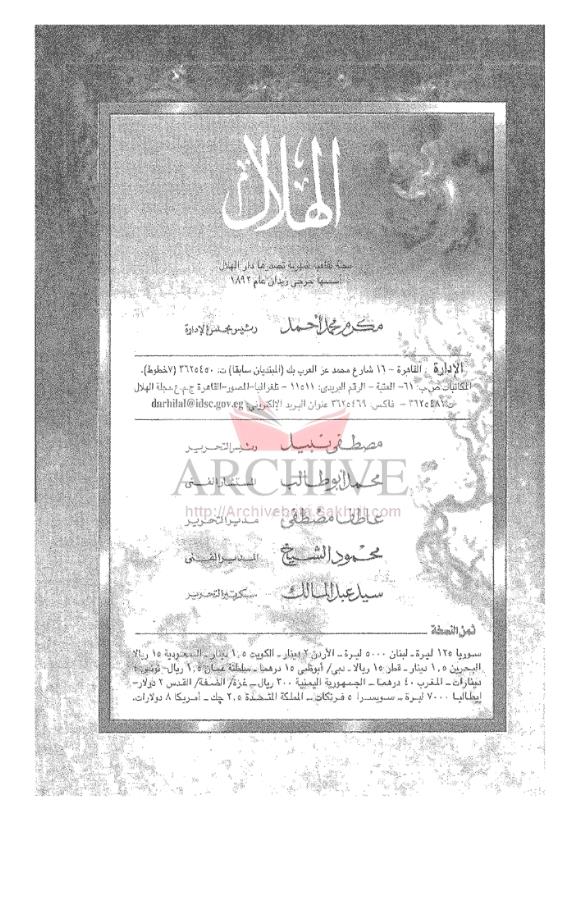 الهلال
مجلة ثقافية شهرية تصدرها دار الهلال
أسسها جرجى زيدان عام ١٨٩٢
مكرم محمد أحمد رئيس مجلس الإدارة
الإدارة : القاهرة - ١٦ شارع محمد عز العرب بك (المبتديان سابقا) ت: ٣٦٢٥٤٥٠ (٧ خطوط).
المكاتبات ص.ب: ٦١- العتبة - الرقم البريدى: ١١٥١١ - تلغرافيا-المصور-القاهرة ج.م.ع. مجلة الهلال
ت: ٣٦٢٥٤٨١ - فاكس: ٣٦٢٥٤٦٩ عنوان البريد الإلكترونى: darhilal@idsc.gov.eg
مصطفى نبيل رئيس التحرير
ARCHIVE
محمد أبو طالب المستشار الفنى
http://Archivebeta.Sakhrit.com
عاطف مصطفى مدير التحرير
محمود الشيخ المدير الفنى
سيد عبد المالك سكرتير التحرير
ثمن النسخة
سوريا ١٢٥ ليرة - لبنان ٥٠٠٠ ليرة - الأردن ٢ دينار - الكويت ١,٥ دينار - السعودية ١٥ ريالا
البحرين ١,٥ دينار - قطر ١٥ ريالا - دبى/ أبوظبى ١٥ درهما - سلطنة عمان ١,٥ ريال - تونس
دينارات - المغرب ٤٠ درهما - الجمهورية اليمنية ٣٠٠ ريال - غزة/ الضفة/ القدس ٢ دولار -
إيطاليا ٧٠٠٠ ليرة - سويسرا ٥ فرنكات - المملكة المتحدة ٢,٥ جك - أمريكا ٨ دولارات.